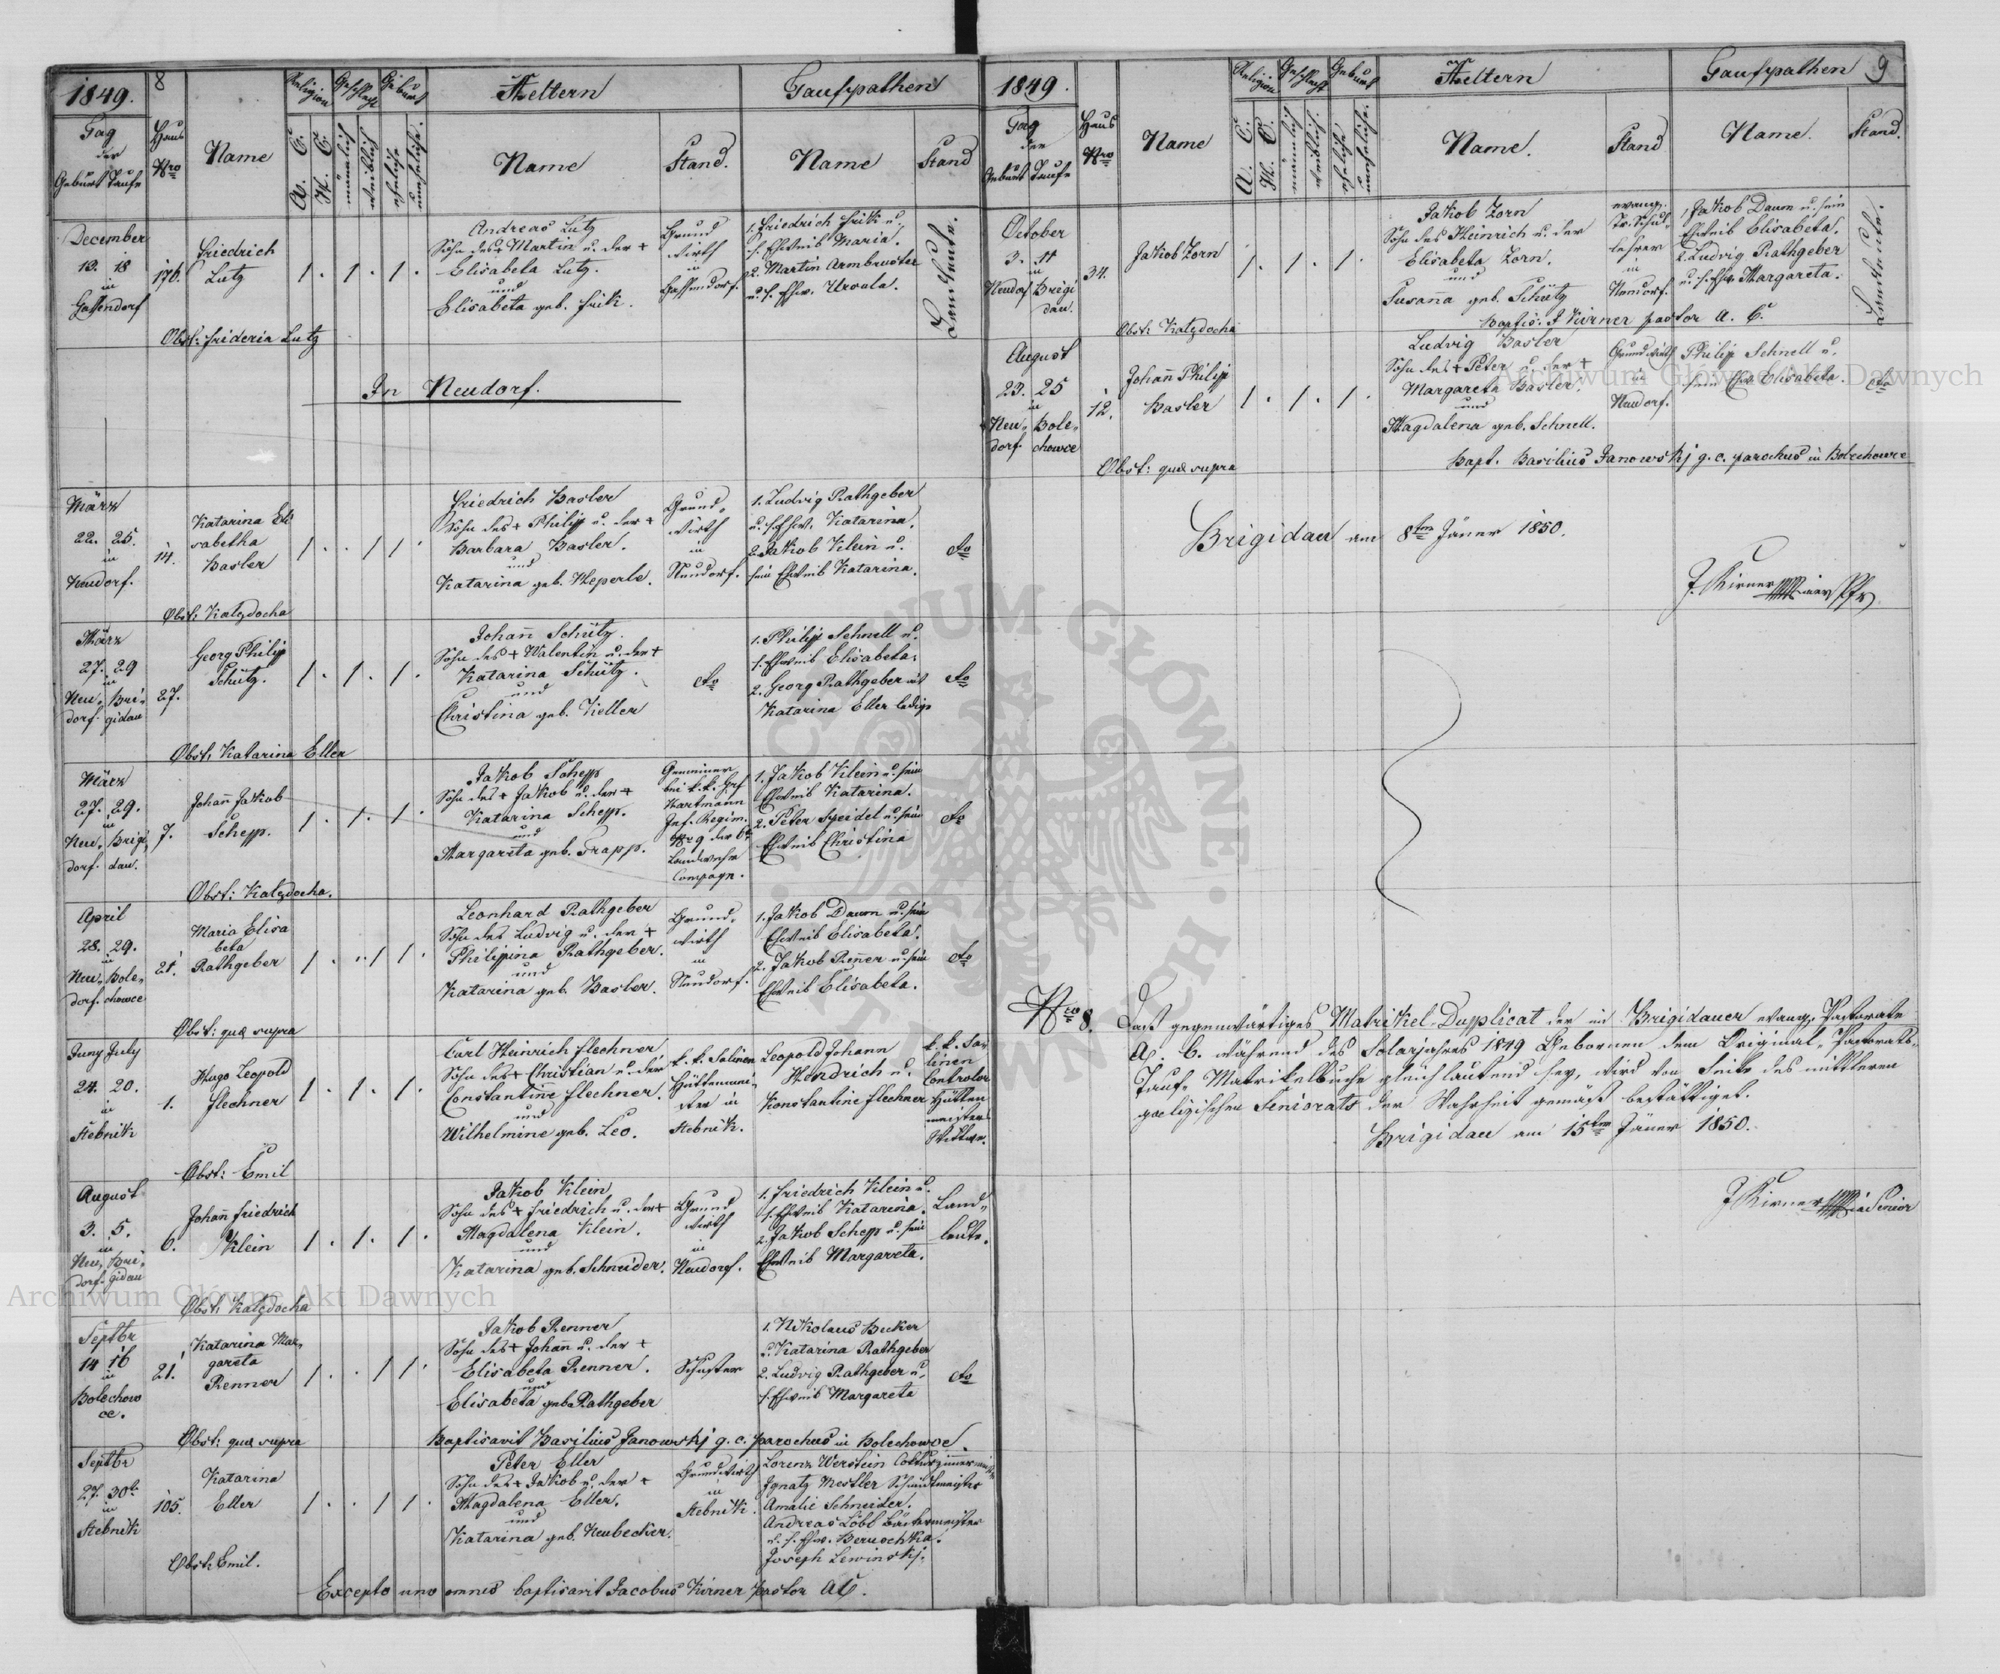 1849.
8
Religion
Geschlecht
Geburt
Aeltern
Taufpathen
Tag
der
Geburt Taufe
Haus
Nro
Name
A. C.
H. C.
männlich
weiblich
eheliche
uneheliche.
Name
Stand.
Name
Stand
December
13. 18
in
Gassendorf
176.
Friedrich
Lutz
1. 1. 1.
Andreas Lutz
Sohn des Martin u. der +
Elisabeta Lutz.
und
Elisabeta geb. Frik.
Grund
wirth
in
Gassendorf.
1. Friedrich Frik u.
s. Ehweib Maria.
2. Martin Armbruster
u. s. Ehw. Ursula.
Landleute.
Obst: Friderica Lutz
In Neudorf.
März
22. 25.
in
Neudorf.
14.
Katarina Eli
sabetha
Basler
Friedrich Basler
Sohn des + Philipp u. der +
Barbara Basler.
und
Katarina geb. Heperle.
Grund-
wirth
in
Neudorf.
1. Ludvig Rathgeber
u. s. Ehw. Katarina.
2. Jakob Klein u.
sein Ehweib Katarina.
dto
Obst: Katzdocha
März
27. 29
in
Neu- Bri-
dorf. gidau
27.
Georg Philipp
Schütz.
Johann Schütz.
Sohn des + Walentin u. der +
Katarina Schütz.
und
Christina geb. Keller
dto
1. Philipp Schnell u.
s. Ehweib Elisabeta.
2. Georg Rathgeber mit
Katarina Eller ledige
dto
Obst: Katarina Eller
März
27. 29.
in
Neu- Brigi
dorf. dau.
7.
Johann Jakob
Schepp.
Jakob Schepp
Sohn des + Jakob u. der +
Katarina Schepp.
und
Margareta geb. Trapp.
Gemeiner
bei k. k. Graf
Hartmann
Inf. Regim.
Nro 9 der 6ten
Landwehr
Compagn.
1. Jakob Klein u. sein
Ehweib Katarina.
2. Peter Speidel u. sein
Ehweib Christina
dto
Obst: Katzdocha.
April
28. 29.
in
Neu- Bole-
dorf. chowce
21.
Maria Elisa
beta
Rathgeber
Leonhard Rathgeber
Sohn des Ludvig u. der +
Philippina Rathgeber.
und
Katarina geb. Basler.
Grund-
wirth
in
Neudorf.
1. Jakob Daum u. sein
Ehweib Elisabeta.
2. Jakob Renner u. sein
Ehweib Elisabeta.
dto
Obst: quae supra
Juny July
24. 20.
in
Stebnik
1.
Hugo Leopold
Flechner
Carl Heinrich Flechner
Sohn des + Christian u. der
Constantine Flechner.
und
Wilhelmine geb. Leo.
k. k. Salinen
Hüttenmei-
ster in
Stebnik.
Leopold Johann
Hendrich u.
Konstantine Flechner
k. k. Sa-
linen
Controlor
Hütten
meisters
Wittwe.
Obst: Emil
August
3. 5.
in
Neu- Bri-
dorf. gidau
6.
Johann Friedrich
Klein
Jakob Klein
Sohn des + Friedrich u. der +
Magdalena Klein.
und
Katarina geb. Schneider.
Grund
wirth
in
Neudorf.
1. Friedrich Klein u.
s. Ehweib Katarina.
2. Jakob Schepp u. sein
Ehweib Margareta.
Land-
leute.
Obst: Katzdocha
Septbr
14 16
in
Bolechow
ce.
21.
Katarina Mar-
gareta
Renner
Jakob Renner
Sohn des + Johann u. der +
Elisabeta Renner.
und
Elisabeta geb. Rathgeber
Schuster
1. Nikolaus Becker
u. Katarina Rathgeber
2. Ludvig Rathgeber u.
s. Ehweib Margareta
dto
Obst: quae supra
Baptisavit Basilius Janowskj g. c. parochus in Bolechowce.
Septbr
27. 30ten
in
Stebnik
105.
Katarina
Eller
Peter Eller
Sohn des + Jakob u. der +
Magdalena Eller.
und
Katarina geb. Neubecker.
Grundwirth
in
Stebnik.
Lorenz Werstein
Ignatz Mestler
Amalie Schneider.
Andreas Löbl
u. s. Ehw. Beruschka.
Joseph Lewinskj.
Obst: Emil.
Excepto uno omnes baptisavit Jacobus Kirner pastor AC.
1849.
Religion
Geschlecht
Geburt
Aeltern
Taufpathen
9
Tag
der
Geburt Taufe
Haus
Nro
Name
A. C.
H. C.
männlich
weiblich.
eheliche
uneheliche.
Name.
Stand
Name.
Stand.
October
3. 11
in
Neudorf Brigi
dau.
34.
Jakob Zorn
1. 1. 1.
Jakob Zorn
Sohn des Heinrich u. der
Elisabeta Zorn.
und
Susanna geb. Schütz
evang.
Tr. Schul-
lehrer
in
Neudorf.
1. Jakob Daum u. sein
Ehweib Elisabeta.
2. Ludvig Rathgeber
u. s. Ehw. Margareta.
Landleute.
Obst: Katzdocha
Baptis. J Kirner pastor A. C.
August
23. 25
in
Neu- Bole-
dorf. chowce
12.
Johann Philipp
Basler
1. 1. 1.
Ludvig Basler
Sohn des + Peter u. der +
Margareta Basler.
und
Magdalena geb. Schnell.
Grundwirth
in
Neudorf.
Philipp Schnell u.
sein Ehw. Elisabeta.
dto
Obst: quae supra
Bapt. Basilius Janowskj g. c. parochus in Bolechowce
Brigidau am 8ten Jäner 1850.
J. Kirner Pfr
Nro 8.
Daß gegenwärtiges Matrikel-Dupplicat der im Brigidauer evang. Pastorate
A. C. während des Solarjahres 1849 Gebornen dem Original-Pastorats-
Tauf-Matrikelbuche gleichlautend sey, wird von Seite des mittleren
galizischen Seniorats der Wahrheit gemäß bestättiget.
Brigidau am 15ten Jäner 1850.
J Kirner Senior
Archiwum Główne Akt Dawnych
Archiwum Główne Akt Dawnych